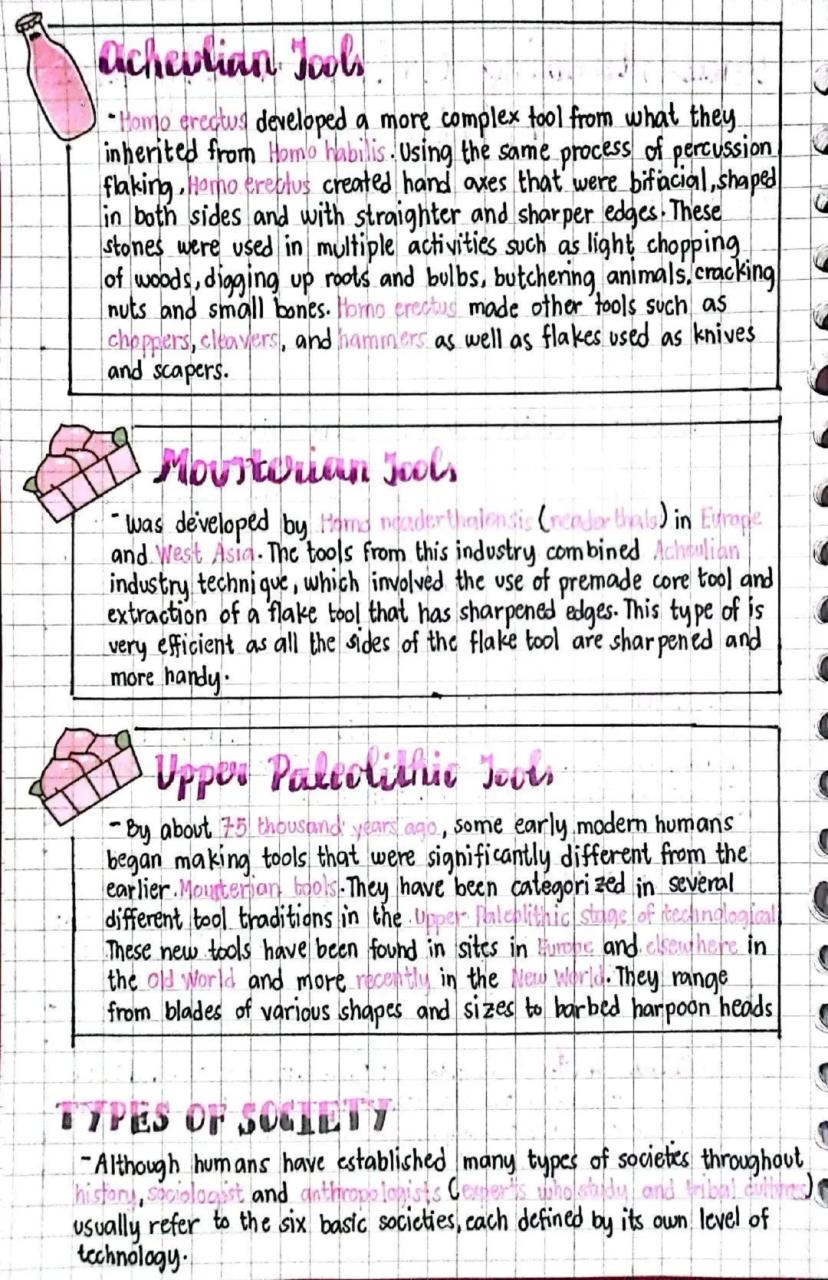 Acheulian Tools
-Homo erectus developed a more complex tool from what they
inherited from Homo habilis. Using the same process of percussion
flaking, Homo erectus created hand axes that were bifacial, shaped
in both sides and with straighter and sharper edges. These
stones were used in multiple activities such as light chopping
of woods, digging up roots and bulbs, butchering animals, cracking
nuts and small bones. Homo erectus made other tools such as
choppers, cleavers, and hammers as well as flakes used as knives
and scapers.
Mousterian Tools
-Was developed by Homo neaderthalensis (neaderthals) in Europe
and West Asia. The tools from this industry combined Acheulian
industry technique, which involved the use of premade core tool and
extraction of a flake tool that has sharpened edges. This type of is
very efficient as all the sides of the flake tool are sharpened and
more handy.
Upper Paleolithic Tools
-By about 75 thousand years ago, some early modern humans
began making tools that were significantly different from the
earlier Mousterian tools. They have been categorized in several
different tool traditions in the Upper Paleolithic stage of technological
These new tools have been found in sites in Europe and elsewhere in
the Old World and more recently in the New World. They range
from blades of various shapes and sizes to barbed harpoon heads
TYPES OF SOCIETY
-Although humans have established many types of societies throughout
history, sociologist and anthropologists (experts who study and tribal cultures)
usually refer to the six basic societies, each defined by its own level of
technology.